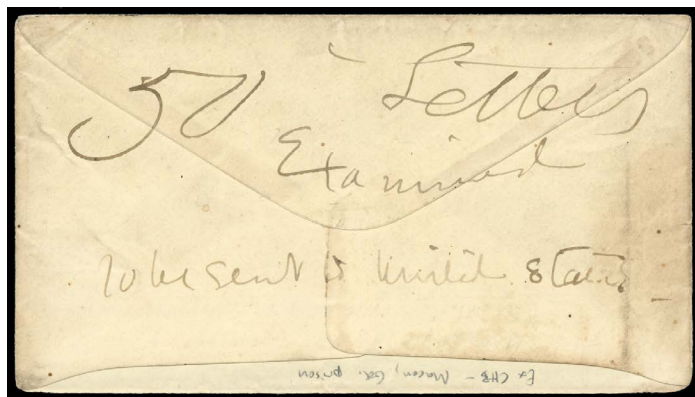 50 Letters
Examined
to be sent to United States
Ex CHB - Macon, Ga. prison